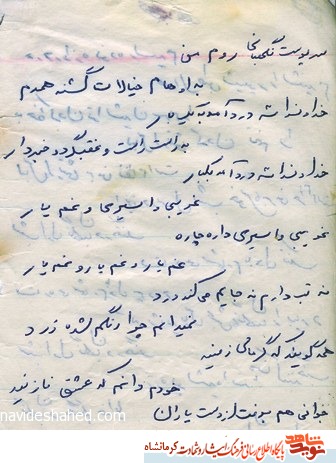 به اوهام خیالات گشته همدم
خداوندا سه درد آمد به یکبار
خداوندا سه درد آمد به یکبار
غریبی و اسیری و غم یار
غریبی و اسیری داره چاره
غم یار و غم یار و غم یار
نه تب دارم نه جایم می کند درد
نمیدانم چرا رنگم شده زرد
همه گویند که گرمای زمینه
خودم دانم که عشق نازنینه
جوانی هم برفت از دست یاران
navideshahed.com
نوید شاهد
پایگاه اطلاع رسانی فرهنگ ایثار و شهادت کرمانشاه